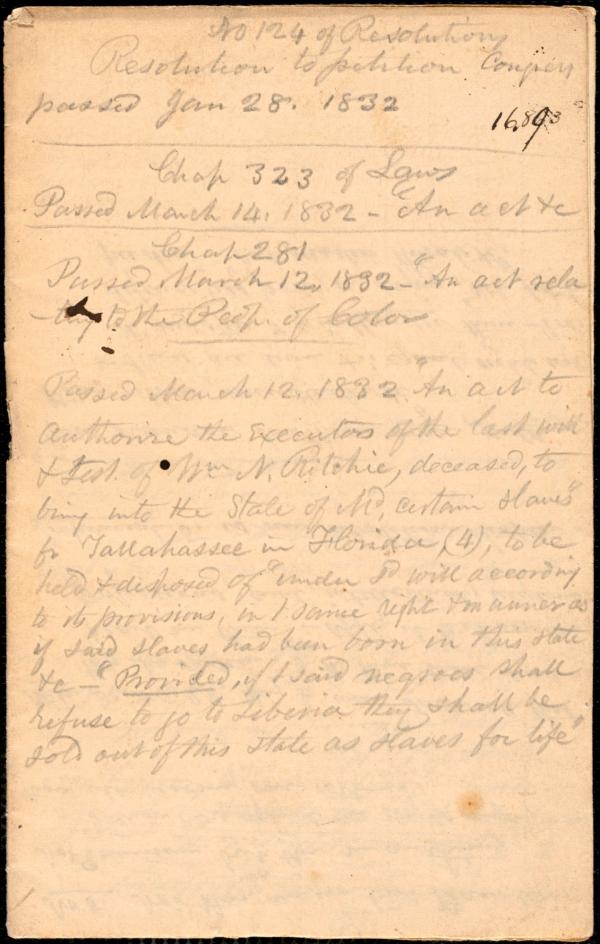 No 124 of Resolutions
Resolution to petition Congress
passed Jan 28. 1832
16,893
Chap 323 of Laws
Passed March 14. 1832 - "An act &c
Chap 281
Passed March 12, 1832 - "An act rela
-ting to the Peop. of Color
Passed March 12. 1832 "An act to
authorize the Executors of the last will
& Test. of Wm N. Ritchie, deceased, to
bring into the State of Md, certain slaves"
fr Tallahassee in Florida, (4), to be
held & disposed of "under sd will according
to its provisions, in t same right & manner as
if said slaves had been born in this state
&c - "Provided, if t said negroes shall
refuse to go to Liberia they shall be
sold out of this state as slaves for life"